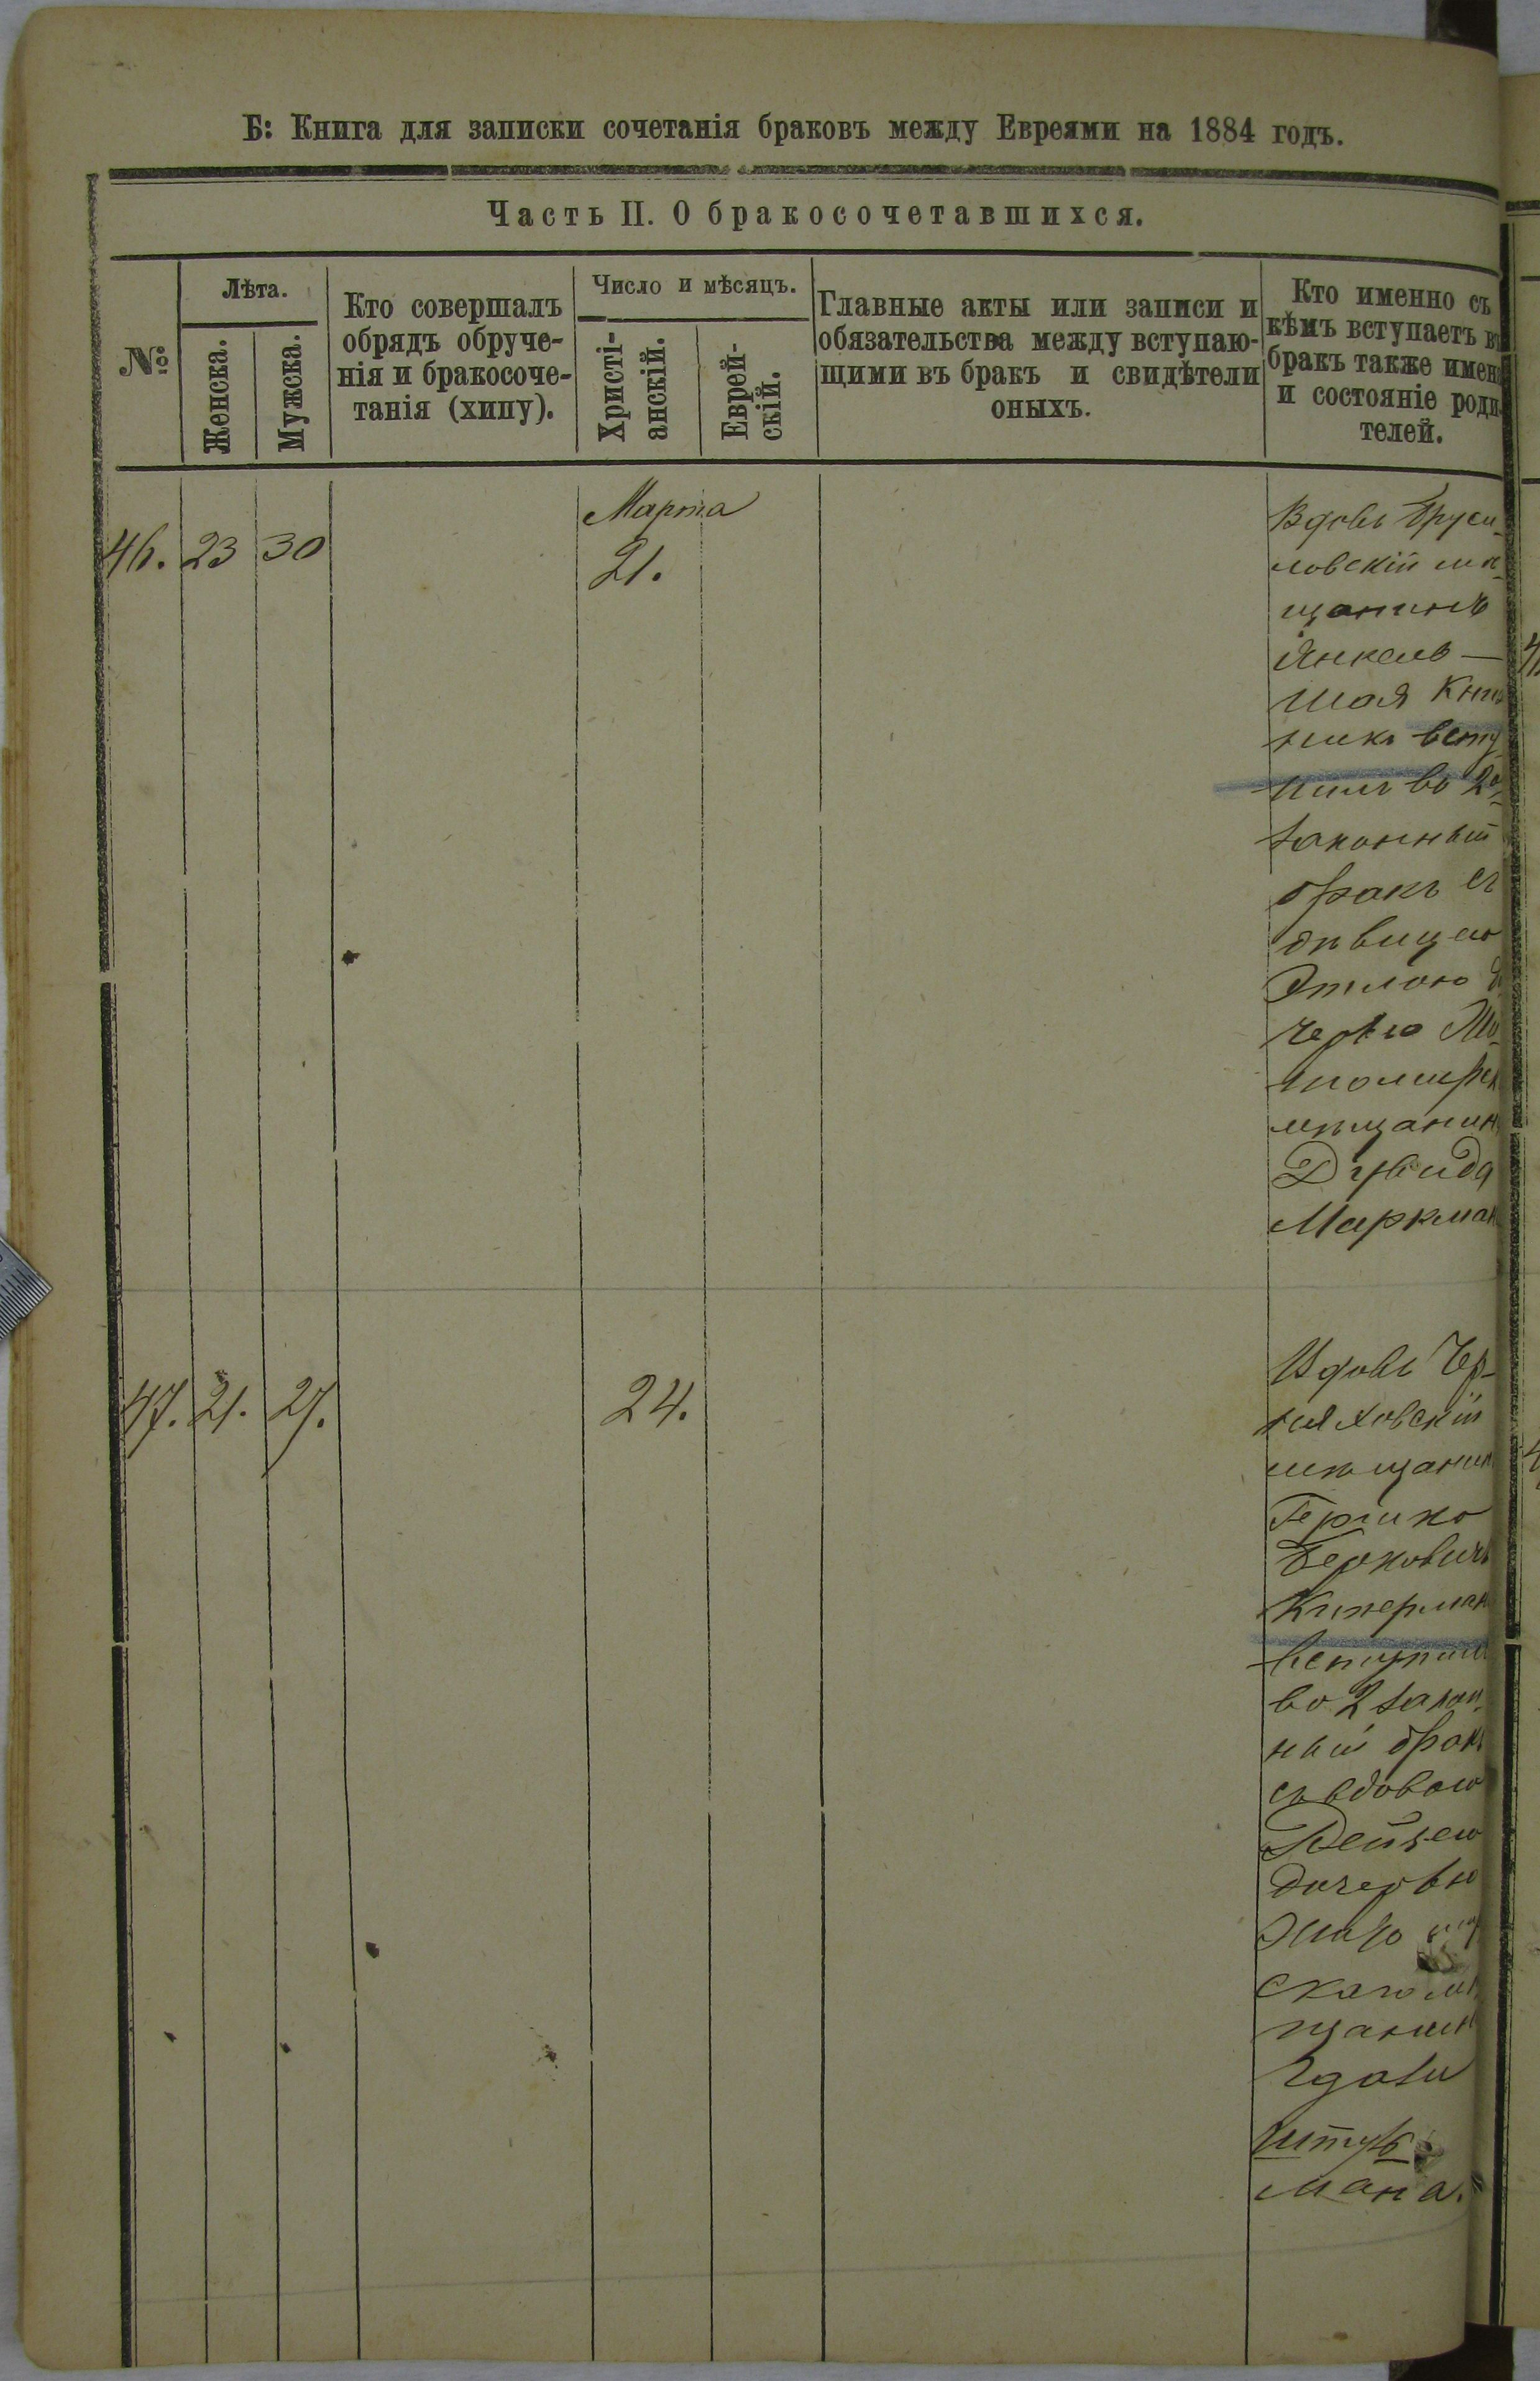 Б: Книга для записки сочетанія браковъ между Евреями на 1884 годъ.
Часть II. О бракосочетавшихся.
№
Лѣта.
Женска.
Мужска.
Кто совершалъ
обрядъ обруче-
нія и бракосоче-
танія (хипу).
Число и мѣсяцъ.
Христі-
анскій.
Еврей-
скій.
Главные акты или записи и
обязательства между вступаю-
щими въ бракъ и свидѣтели
оныхъ.
Кто именно съ
кѣмъ вступаетъ въ
бракъ также имена
и состояніе роди-
телей.
46. 23 30
Марта
21.
Вдовъ Бруси-
ловскій мѣ-
щанинъ
Янкель —
Шая
никъ всту-
пилъ во 2й
законный
бракъ съ
дѣвицею
Этлою
черью Жи-
томирск
мѣщанин
Дувида
Маркман
47. 21. 27.
24.
Вдовъ Чер-
няховскій
мѣщанин
Гершко
Берковичъ
Киперман
вступилъ
во 2 закон-
ный бракъ
съ вдовою
Бейлею
дочерью
скаго мѣ
щанин
Штуль-
мана.